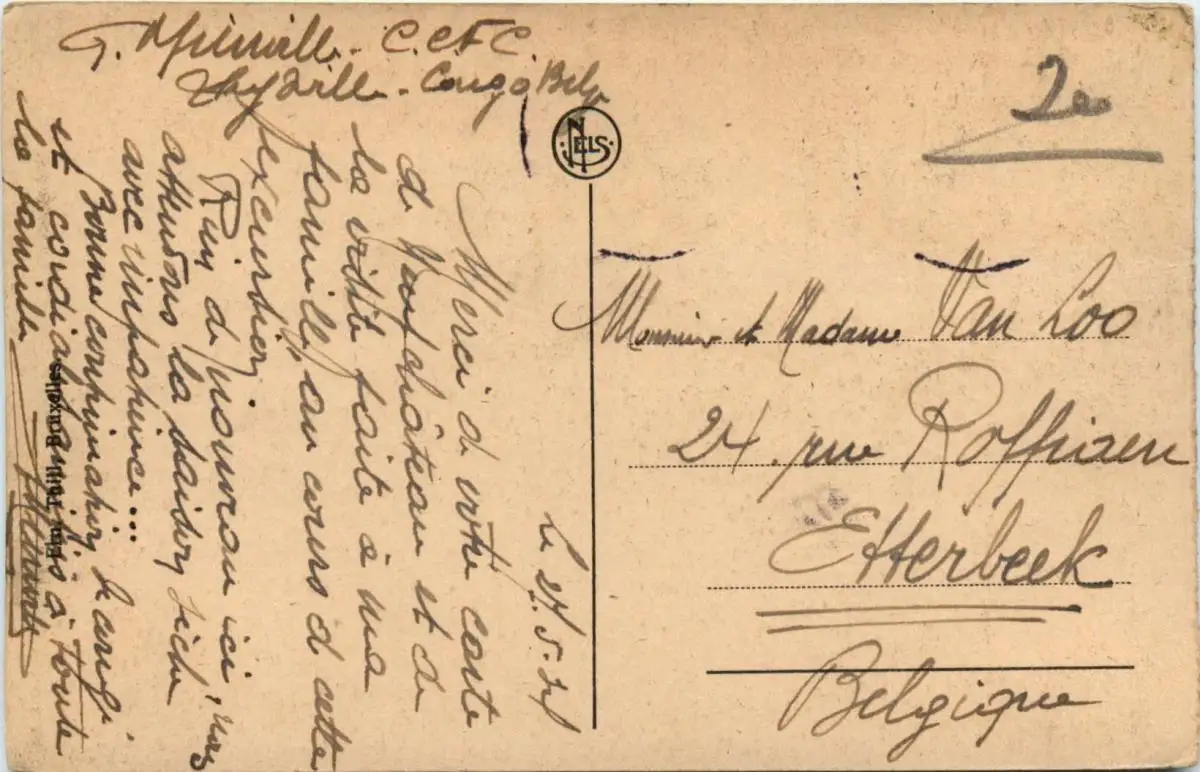 G. C.C.F.C.
Congo Belge
NELS
2e
Le 27.5.
Merci de votre carte
de Neufchâteau et de
la visite faite à ma
famille, au cours de cette
excursion.
Rien de nouveau ici, nous
attendons la saison sèche
avec impatience...
Bonne continuation
et cordiales amitiés à toute
la famille
Monsieur et Madame Van Loo
24. rue Roffiaen
Etterbeek
Belgique
Ern. Thill, Bruxelles